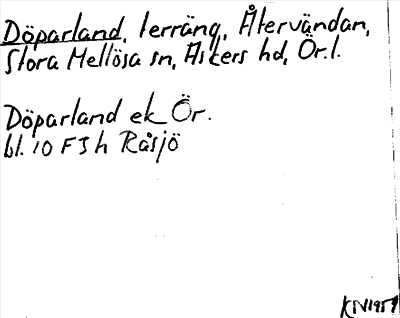 Döparland, terräng, Återvändan,
Stora Mellösa sn, Askers hd, Ör. l.
Döparland ek Ör.
bl. 10 F 3 h Råsjö
KN 1957